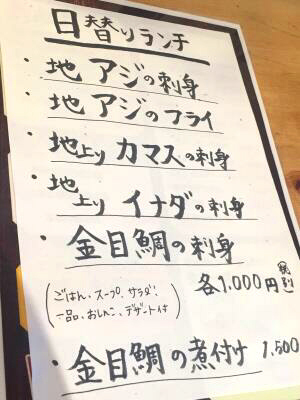 日替りランチ
・地アジの刺身
・地アジのフライ
・地上りカマスの刺身
・地上りイナダの刺身
・金目鯛の刺身
各1,000円
(ごはん、スープ、サラダ、
一品、おしんこ、デザート付)
・金目鯛の煮付け 1,500